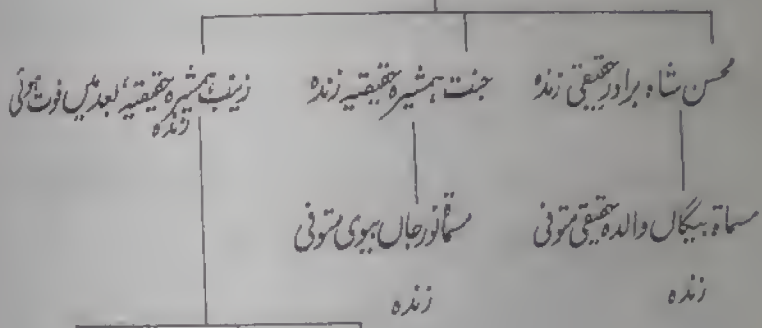 محسن شاہ برادر حقیقی زندہ جنت ہمشیرہ حقیقیہ زندہ زینب ہمشیرہ حقیقیہ، بعد میں فوت ہوئی
زندہ
مسماۃ بیگاں والدہ حقیقی متوفی مسماۃ نور جاں بیوی متوفی
زندہ زندہ